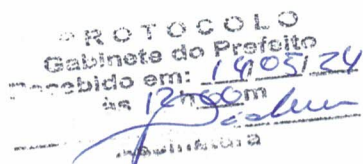 PROTOCOLO
Gabinete do Prefeito
Recebido em: 14/05/24
às 12h00m
Assinatura